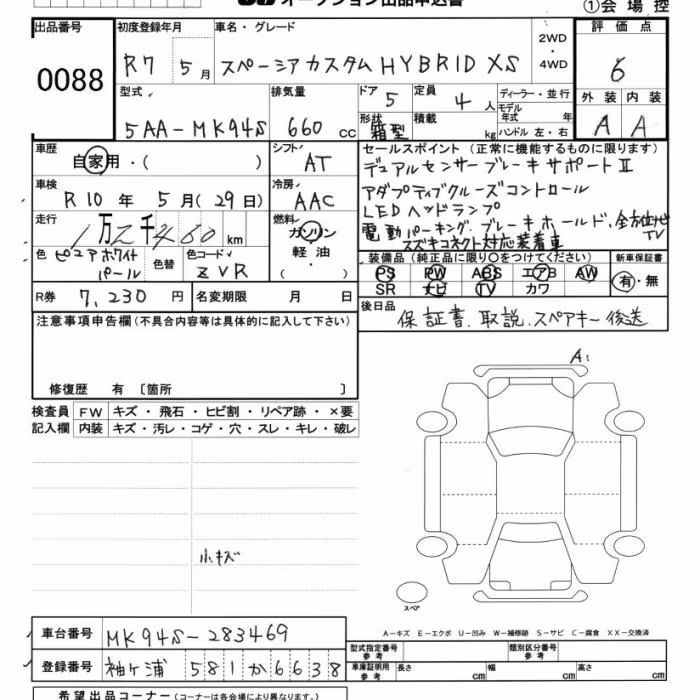 オークション出品申込書
①会場控
出品番号
0088
初度登録年月
R7 5月
車名・グレード
スペーシアカスタム HYBRID XS
2WD
・
4WD
評価点
6
型式
5AA-MK94S
排気量
660 cc
ドア 5
定員 4人
形状 箱型
積載 kg
ディーラー・並行
モデル年式 年
ハンドル 左・右
外装 内装
A A
車歴
自家用・( )
シフト
AT
セールスポイント(正常に機能するものに限ります)
デュアルセンサーブレーキサポートⅡ
アダプティブクルーズコントロール
LEDヘッドランプ
電動パーキング、ブレーキホールド、全方位ナビTV
スズキコネクト対応装着車
車検
R10年 5月(29日)
冷房
AAC
走行
1万2千460km
燃料
ガソリン
軽油
( )
色 ピュアホワイトパール
色替
色コード
ZVR
装備品(純正品に限り○をつけてください)
PS PW ABS エアB AW
SR ナビ TV カワ
新車保証書
有・無
R券 7,230円
名変期限 月 日
後日品
保証書、取説、スペアキー後送
注意事項申告欄(不具合内容等は具体的に記入して下さい)
修復歴 有〔箇所 〕
検査員記入欄
FW キズ・飛石・ヒビ割・リペア跡・×要
内装 キズ・汚レ・コゲ・穴・スレ・キレ・破レ
A1
小キズ
スペア
A-キズ E-エクボ U-凹み W-補修跡 S-サビ C-腐食 XX-交換済
車台番号 MK94S-283469
登録番号 袖ヶ浦 581か6638
型式指定番号 参考
類別区分番号 参考
車庫証明用 参考
長さ cm 幅 cm 高さ cm
希望出品コーナー(コーナーは各会場により異なります。)